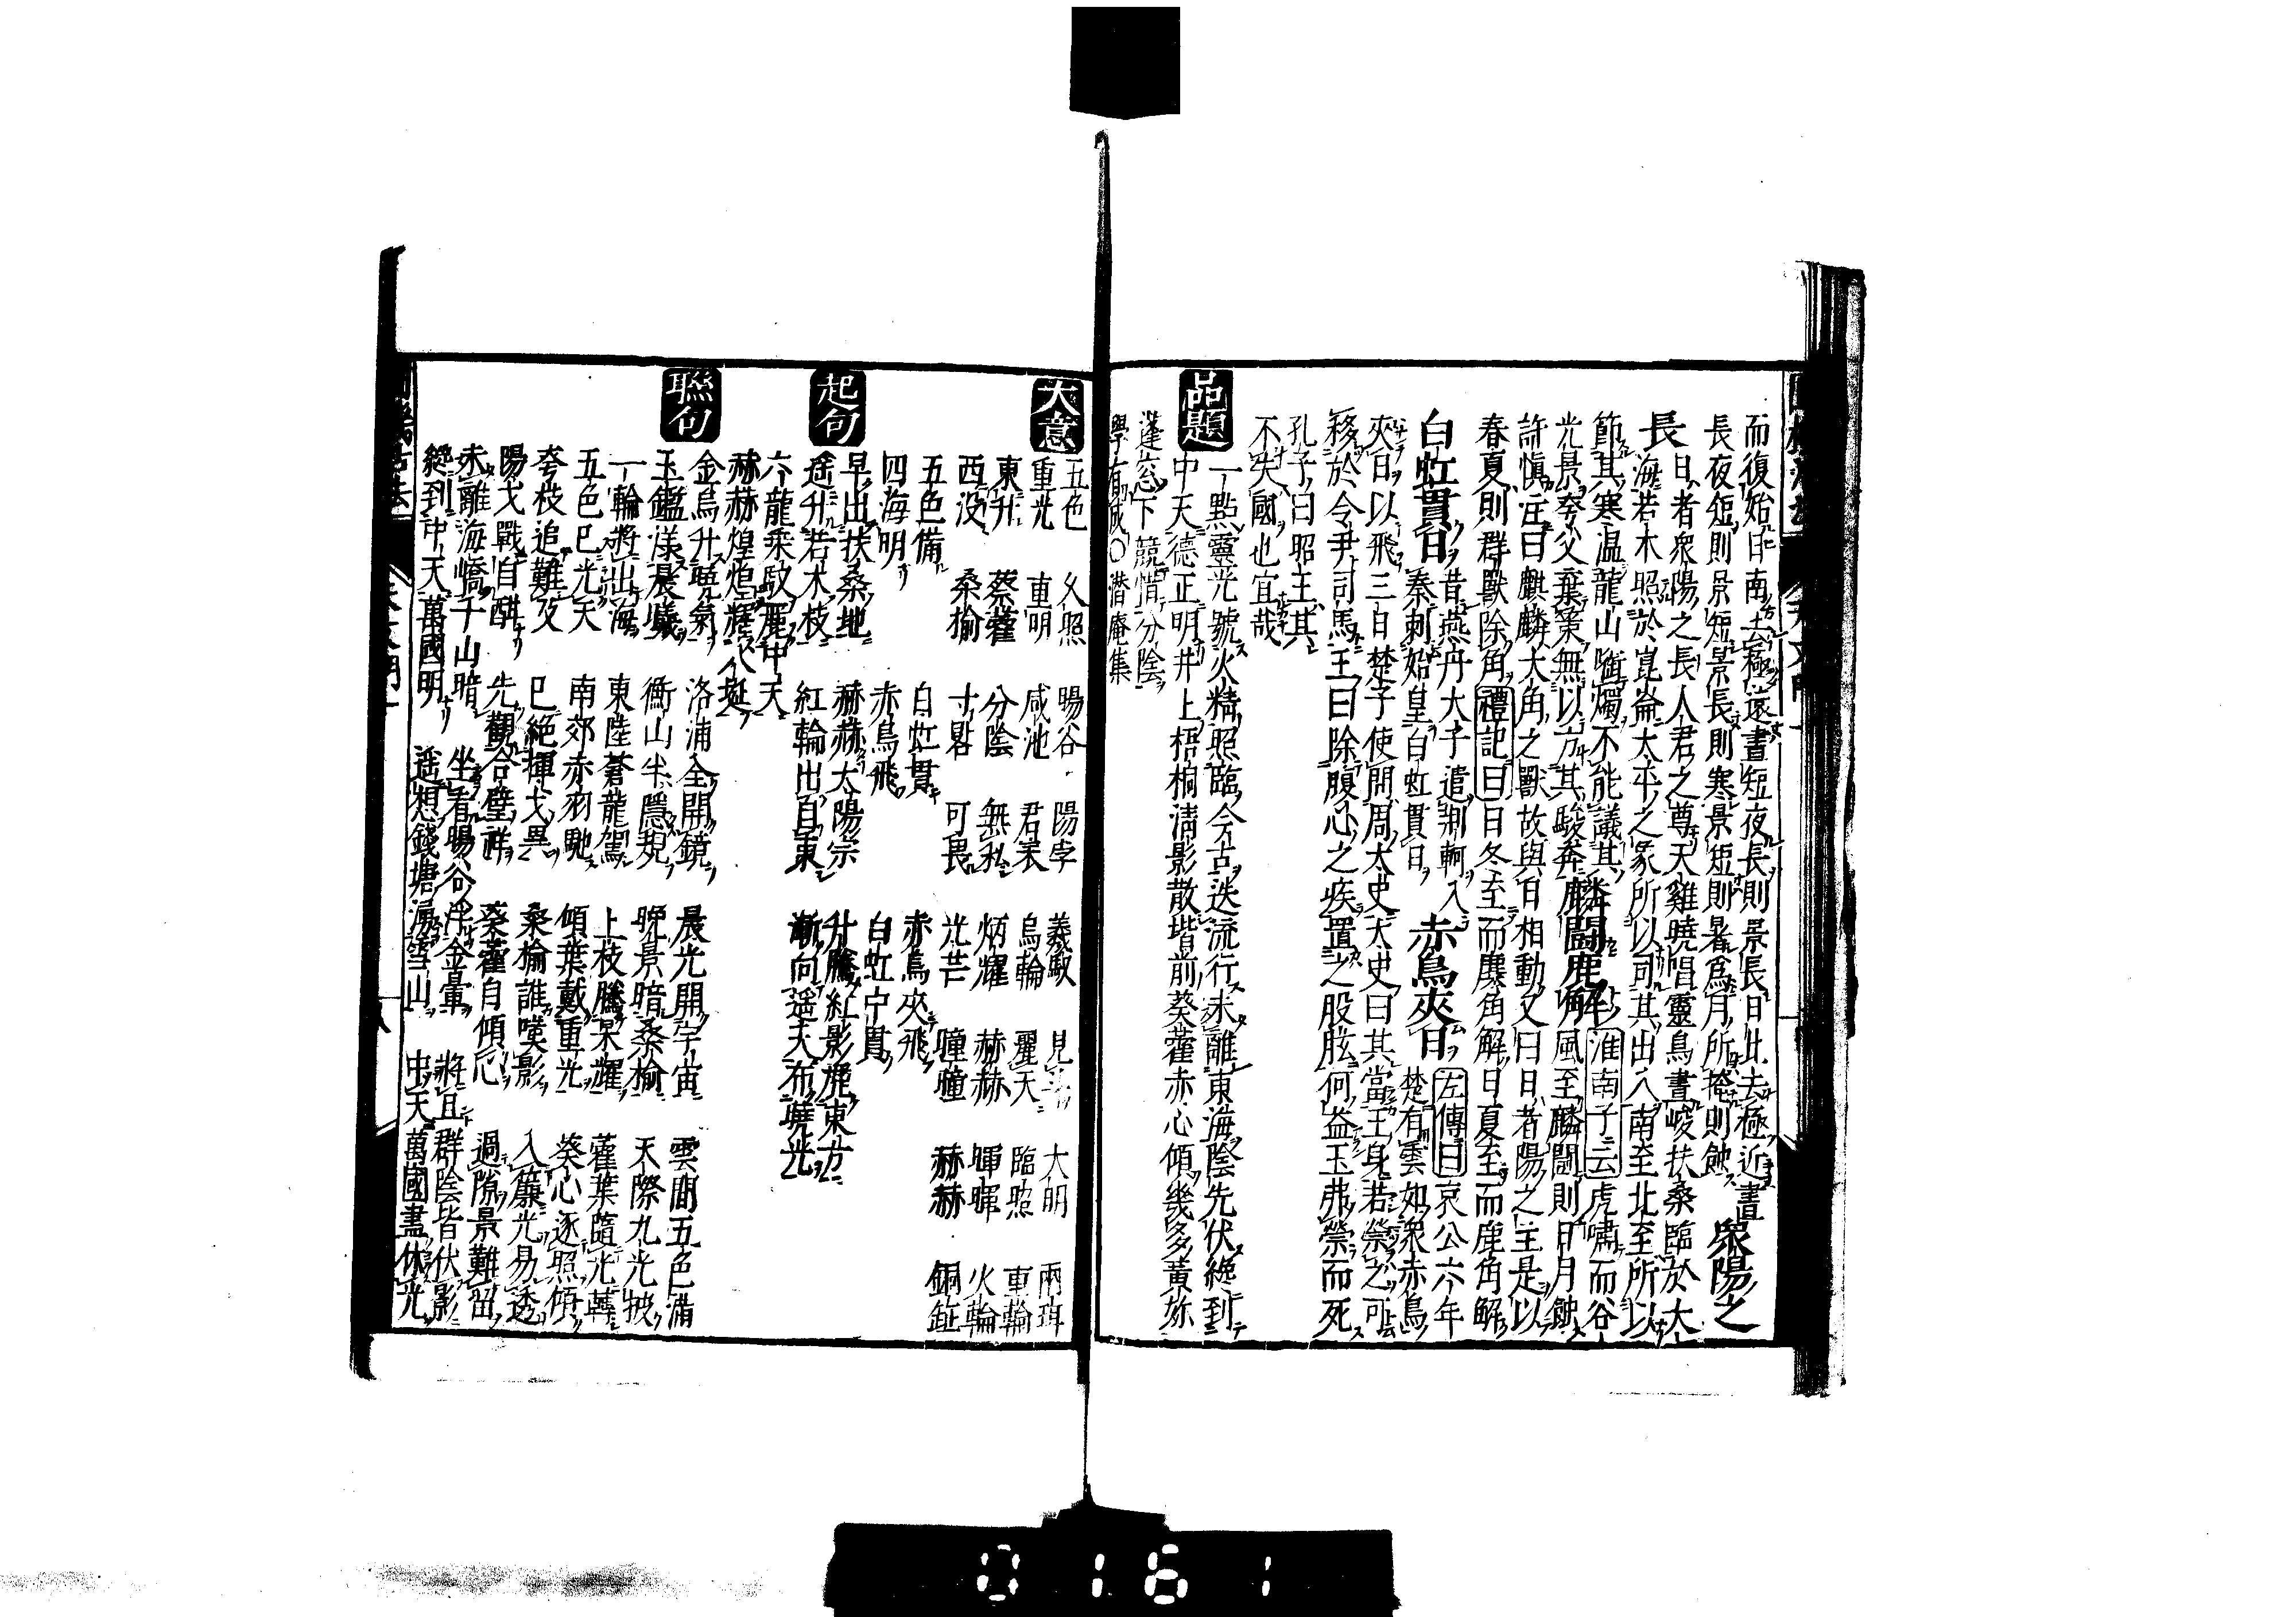 而復始日南去極遠晝短夜長則景長日北去極近晝
長夜短則景短景長則寒景短則暑為月所掩則蝕 衆陽之
長 日者衆陽之長人君之尊天雞曉唱靈烏晝峻扶桑臨於大
海若木照於崑崙太平之象所以司其出入南至北至所以
節其寒温龍山啣燭不能議其
光景夸父棄策無以方其駿奔 麟鬪鹿解 淮南子云虎嘯而谷
風至麟鬪則日月蝕
許慎注曰麒麟大角之獸故與日相動又曰日者陽之主是以
春夏則群獸除角 禮記曰日冬至而麋角解日夏至而鹿角解
白虹貫日 昔燕丹大子遣荆軻入
秦刺始皇白虹貫日 赤烏夾日 左傳曰哀公六年
楚有雲如衆赤烏
夾日以飛三日楚子使問周太史大史曰其當王身若禜之可
移於令尹司馬王曰除腹心之疾置之股肱何益王弗禜而死
孔子曰昭王其
不失國也宜哉
品題 一點靈光號火精照臨今古迭流行未離東海陰先伏纔到
中天德正明井上梧桐清影散堦前葵藿赤心傾幾多黄妳
蓬窓下競惜分陰
學有成〇潜庵集
大意 五色 久照 暘谷 陽孛 義馭 見 大明 兩珥
重光 重明 咸池 君表 烏輪 麗天 臨照 車輪
東升 葵藿 分陰 無私 炳耀 赫赫 暉暉 火輪
西没 桑榆 寸晷 可畏 光芒 曈曈 赫赫 銅鉦
五色備 白虹貫 赤烏夾飛
四海明 赤烏飛 白虹中貫
起句 早出扶桑地 赫赫太陽宗 升騰紅影麗東方
遥升若木枝 紅輪出自東 漸向遥天布曉光
六龍乘馭麗中天
赫赫煌煌輝八埏
聯句 金烏升曉氣 洛浦全開鏡 晨光開宇宙 雲間五色滿
玉鑑漾晨曦 衡山半隱規 晩景暗桑榆 天際九光披
一輪將出海 東陸蒼龍駕 上枝騰杲耀 藿葉隨光轉
五色已光天 南郊赤羽馳 傾葉戴重光 葵心逐照傾
夸枝追難及 已絶揮戈異 桑榆誰嘆影 入簾光易透
陽戈戰自酣 先觀合壁祥 葵藿自傾心 過隙景難留
未離海嶠千山暗 坐看暘谷浮金暈 將且群陰皆伏影
纔到中天萬國明 遥想錢塘湧雪山 中天萬國盡休光
八
0161